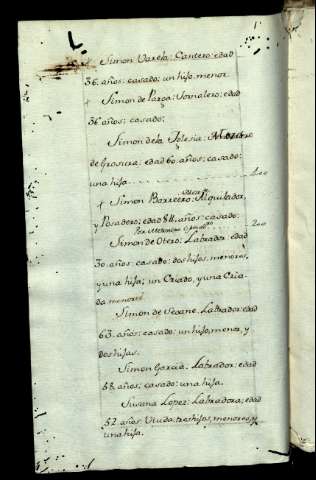 Simon Varela: Cantero: edad
36. años: casado: un hijo menor
Simon de Parga: Jornalero: edad
36 años: casado:
Simon de la Iglesia: Maestro
de Grosura: edad 60. años: casado:
una hija 400
Simon Barreiro: Alquilador,
y Posadero: edad 84. años: casado: 200
Simon de Otero: Labrador: edad
30. años: casado: dos hijos, menores,
y una hija; un Criado, y una Cria-
da menores
Simon de Seoane: Labrador: edad
63. años: casado: un hijo, menor, y
dos hijas.
Simon Garcia: Labrador: edad
58. años: casado: una hija.
Susana Lopez: Labradora; edad
52. años: Viuda: tres hijos, menores, y
una hija.